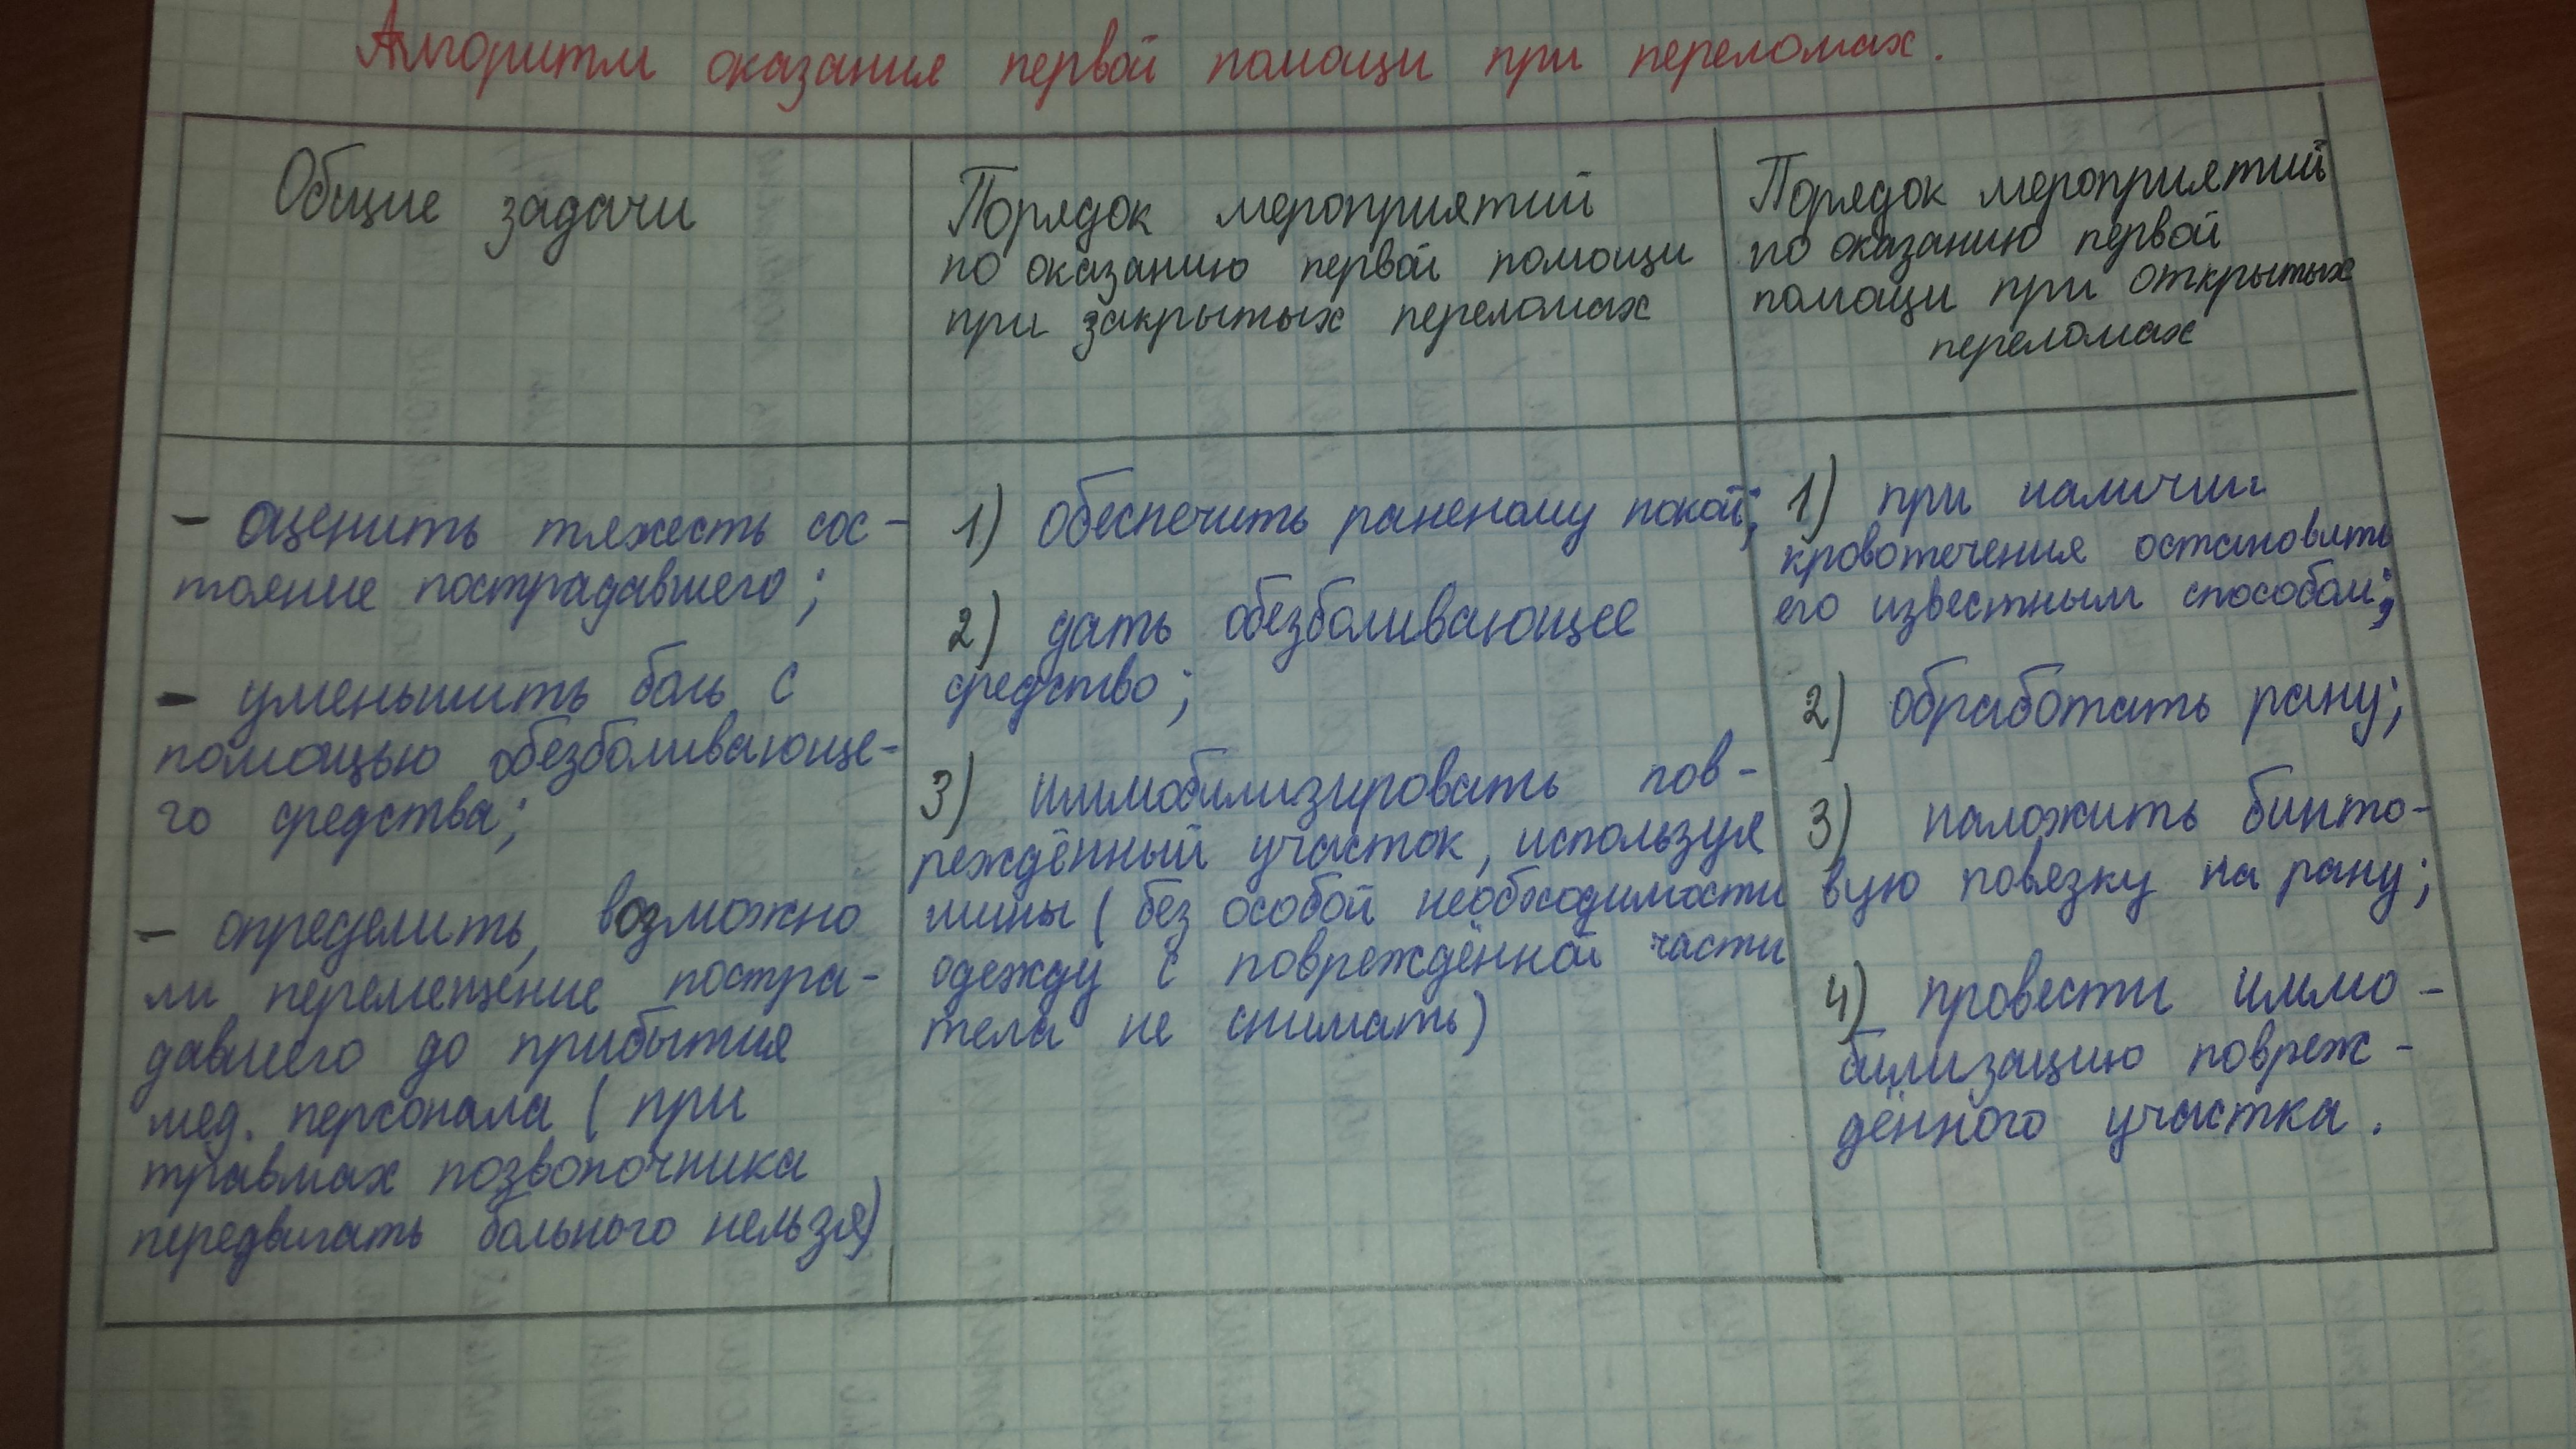 Алгоритм оказания первой помощи при переломах.
Общие задачи
Порядок мероприятий
по оказанию первой помощи
при закрытых переломах
Порядок мероприятий
по оказанию первой
помощи при открытых
переломах
- оценить тяжесть сос-
тояние пострадавшего;
- уменьшить боль с
помощью обезболивающе-
го средства;
- определить, возможно
ли перемещение постра-
давшего до прибытия
мед. персонала (при
травмах позвоночника
передвигать больного нельзя)
1) обеспечить раненому покой;
2) дать обезболивающее
средство;
3) иммобилизировать пов-
реждённый участок, используя
шины (без особой необходимости
одежду с повреждённой части
тела не снимать)
1) при наличии
кровотечения остановить
его известным способом;
2) обработать рану;
3) наложить бинто-
вую повязку на рану;
4) провести иммо-
билизацию повреж-
дённого участка.